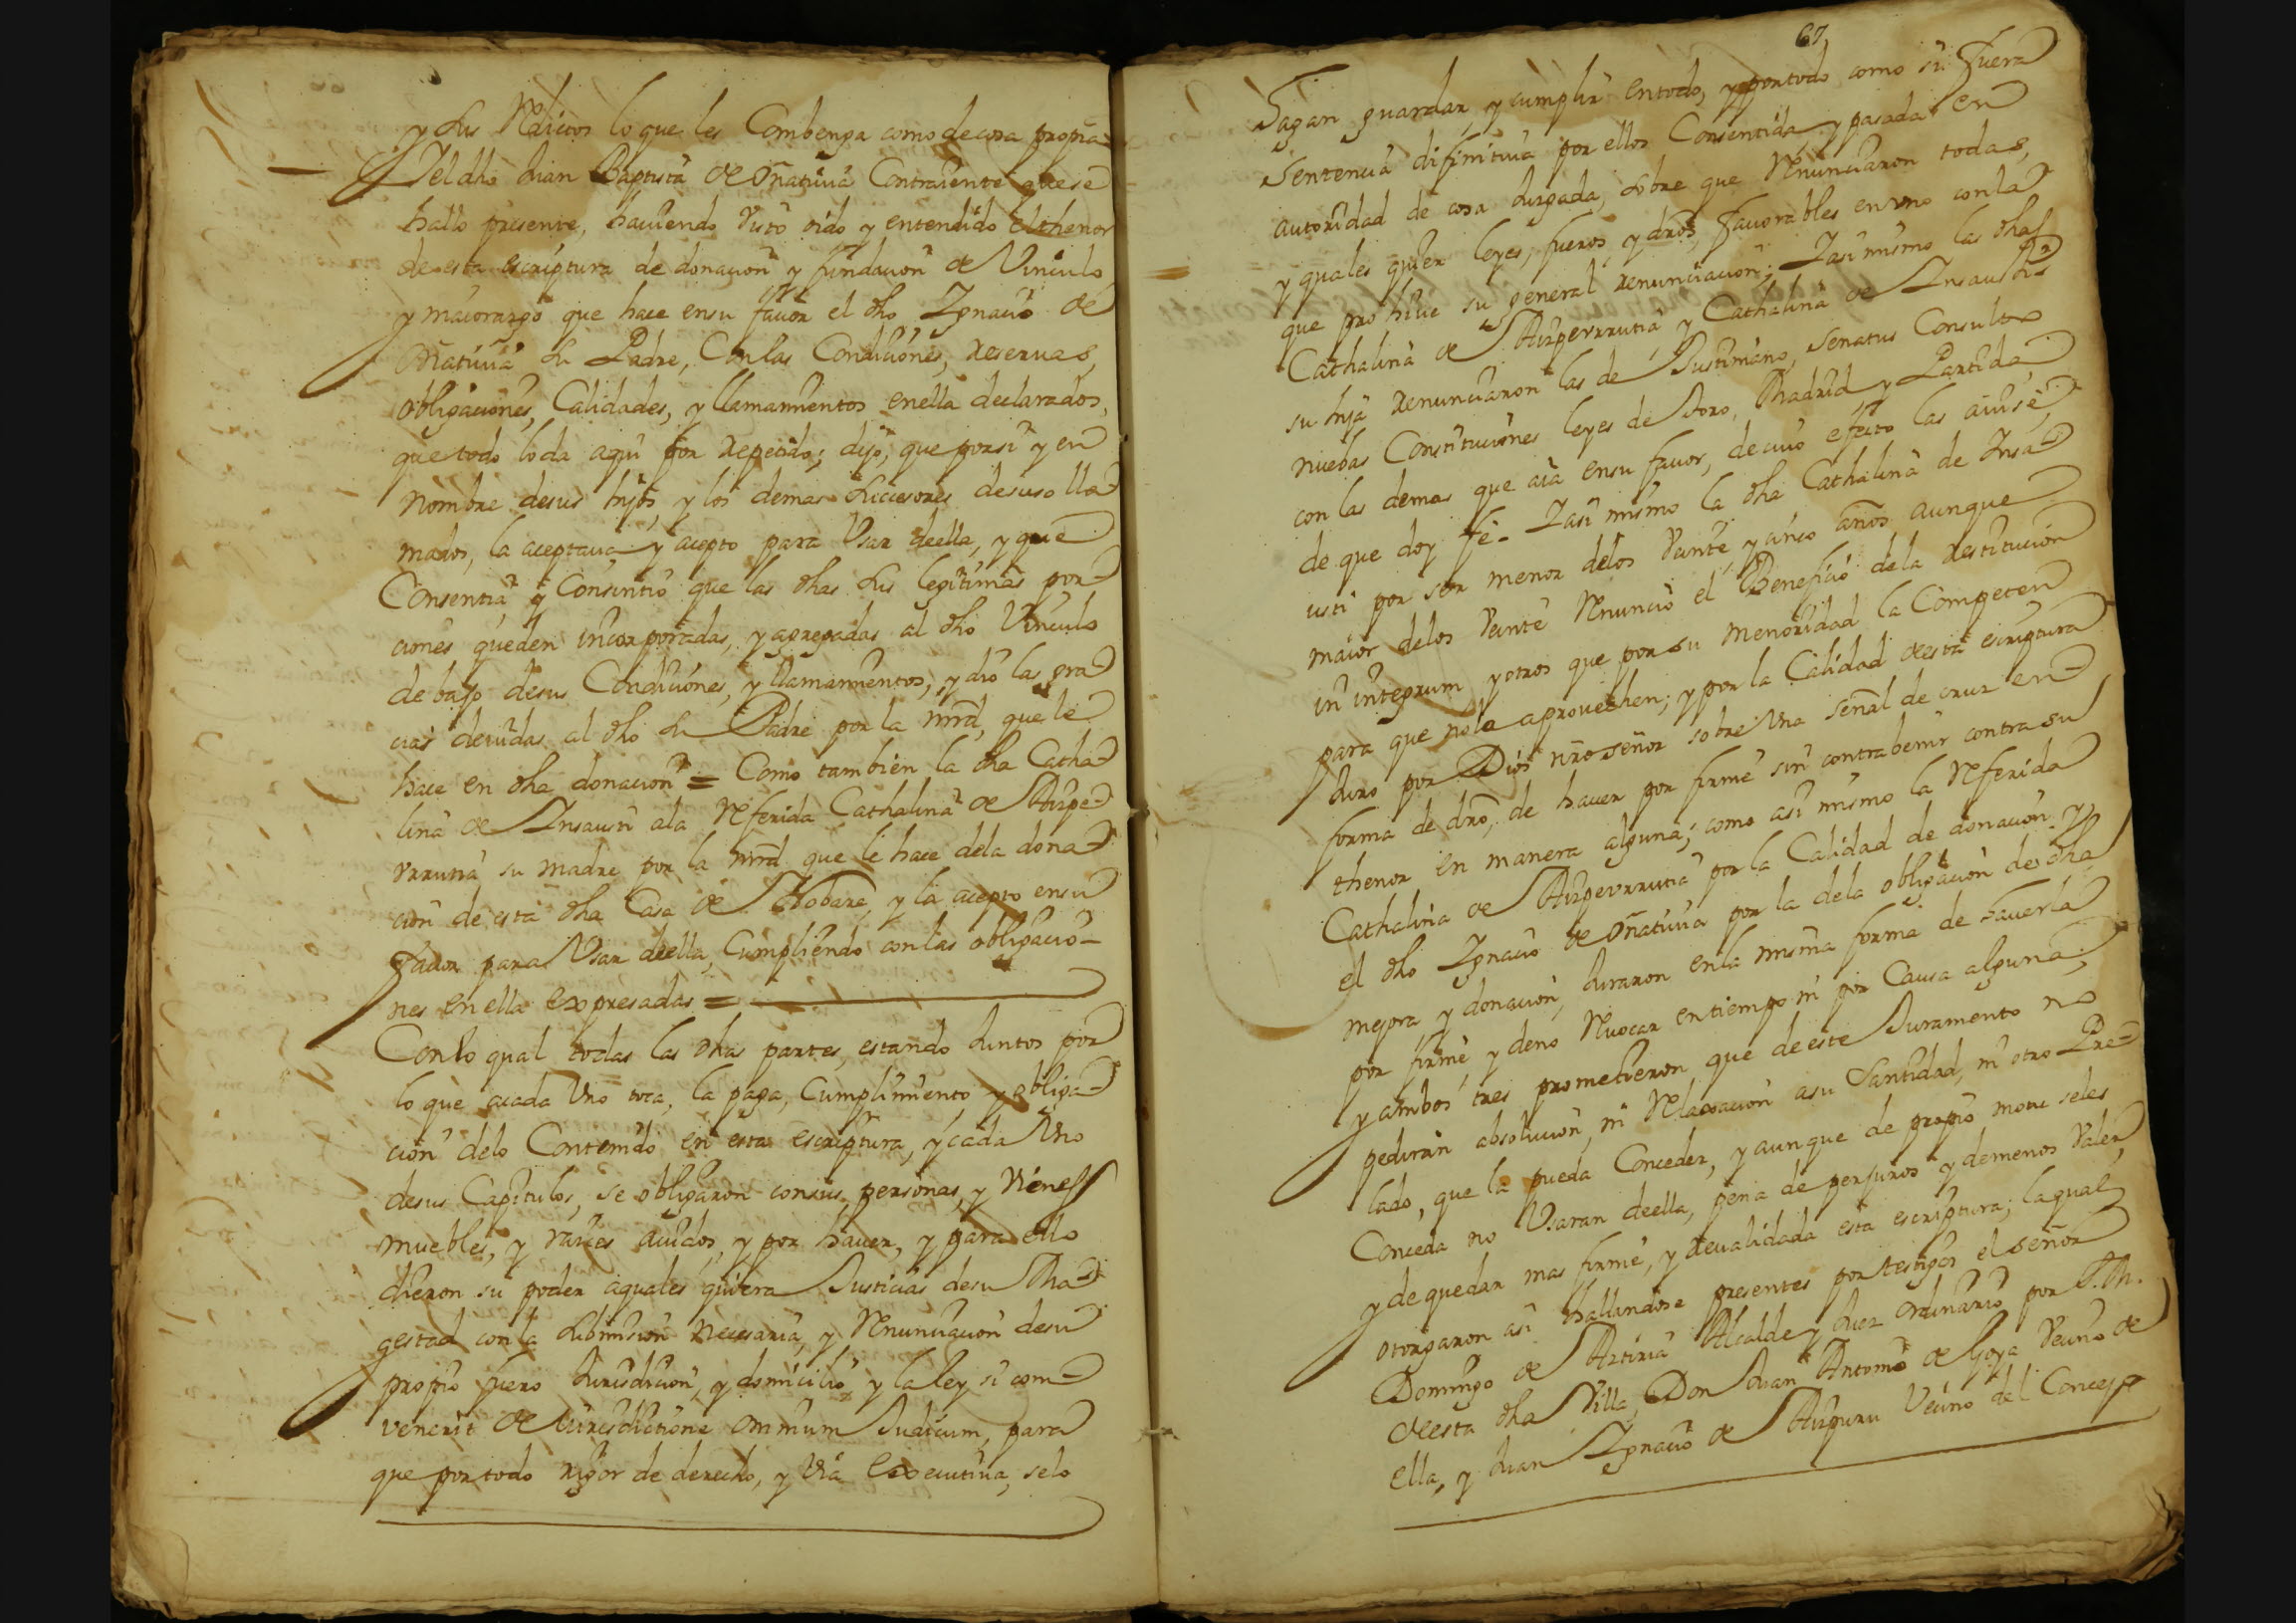 y sus Réditos lo que les Combenga como de cosa propia
Y el dho Juan Baptista de Oñatiuia Contraiente que se
hallo presente, hauiendo visto oido y entendido el thenor
de esta escriptura de donacion y fundacion de Vinculo
y maiorazgo que hace en su fauor el dho Ignacio de
Oñatiuia su Padre, Con las Condiciones, reseruas,
obligaciones, Calidades, y llamamientos en ella declarados,
que todo lo da aqui por repetido; dijo, que por si y en
nombre de sus hijos, y los demas succesores de suso lla-
mados, la aceptaua y acepto para Usar de ella, y que
Consentia y Consintio que las dhas sus legitimas por-
ciones queden incorporadas, y agregadas al dho Vinculo
debajo de sus Condiciones, y llamamientos, y dio las gra-
cias deuidas al dho su Padre por la mrd, que le
hace en dha donacion = Como tambien la dha Catha-
lina de Insausti a la Referida Cathalina de Aizpe-
urrutia su madre por la mrd que le hace de la dona-
cion de esta dha Casa de y la acepto en su
fauor para Usar de ella, Cumpliendo con las obligacio-
nes en ella expresadas =
Con lo qual todas las dhas partes, estando Juntos por
lo que a cada Uno toca, la paga, Cumplimiento y obliga-
cion de lo Contenido en esta escriptura, y cada Uno
de sus Capitulos, se obligaron con sus personas, y Vienes
muebles, y raices auidos, y por hauer, y para ello
dieron su poder a quales quiera Justicias de su Ma-
gestad con la submision necesaria, y Renunciacion de su
propio fuero Jurisdicion, y domicilio y la ley si com-
venerit de iurisdictione omnium Judicum, para
que por todo rigor de derecho, y via executiua, se lo
67
hagan guardar, y cumplir en todo, y por todo como si fuera
Sentencia difinitiua por ellos Consentida, y pasada en
autoridad de cosa Juzgada, sobre que Renunciaron todas,
y quales quier leyes, fueros, y dros, fauorables en uno con la
que prohiue su general renunciacion; Y asi mismo las dhas
Cathalina de Aizpeurrutia, y Cathalina de Insausti
su hija renunciaron las de Justiniano, Senatus Consulto
nuebas Constituciones leyes de Toro, Madrid, y Partida,
con las demas que aia en su fauor, de cuio efecto las auise,
de que doy fe. Y asi mismo la dha Cathalina de Insa-
usti por ser menor de los veinte y cinco años aunque
maior de los veinte Renuncio el Beneficio de la restitucion
in integrum y otros que por su menoridad la Competen
para que no la aprouechen; y por la Calidad de esta escriptura
Juro por Dios nro señor sobre Una señal de cruz en
forma de dro, de hauer por firme sin contrabenir contra su
thenor en manera alguna; como asi mismo la Referida
Cathalina de Aizpeurrutia por la Calidad de donacion, y
el dho Ignacio de Oñatiuia por la de la obligacion de dha
mejora y donacion, Juraron en la misma forma de hauerla
por firme, y de no Reuocar en tiempo ni por Causa alguna,
y ambos tres prometieron que de este Juramento no
pediran absolucion, ni Relaxacion a su Santidad, ni otro Pre-
lado, que la pueda Conceder, y aunque de propio motu se les
Conceda no Usaran de ella, pena de perjuros y de menos valer,
y de quedar mas firme, y reualidada esta escriptura; la qual
otorgaron asi hallandose presentes por testigos el señor
Domingo de Artiria Alcalde y Juez ordinario por S. M.
de esta dha Villa, Don Juan Antonio de Goya Vecino de
ella, y Juan Ignacio de Aizpuru Vecino del Concejo